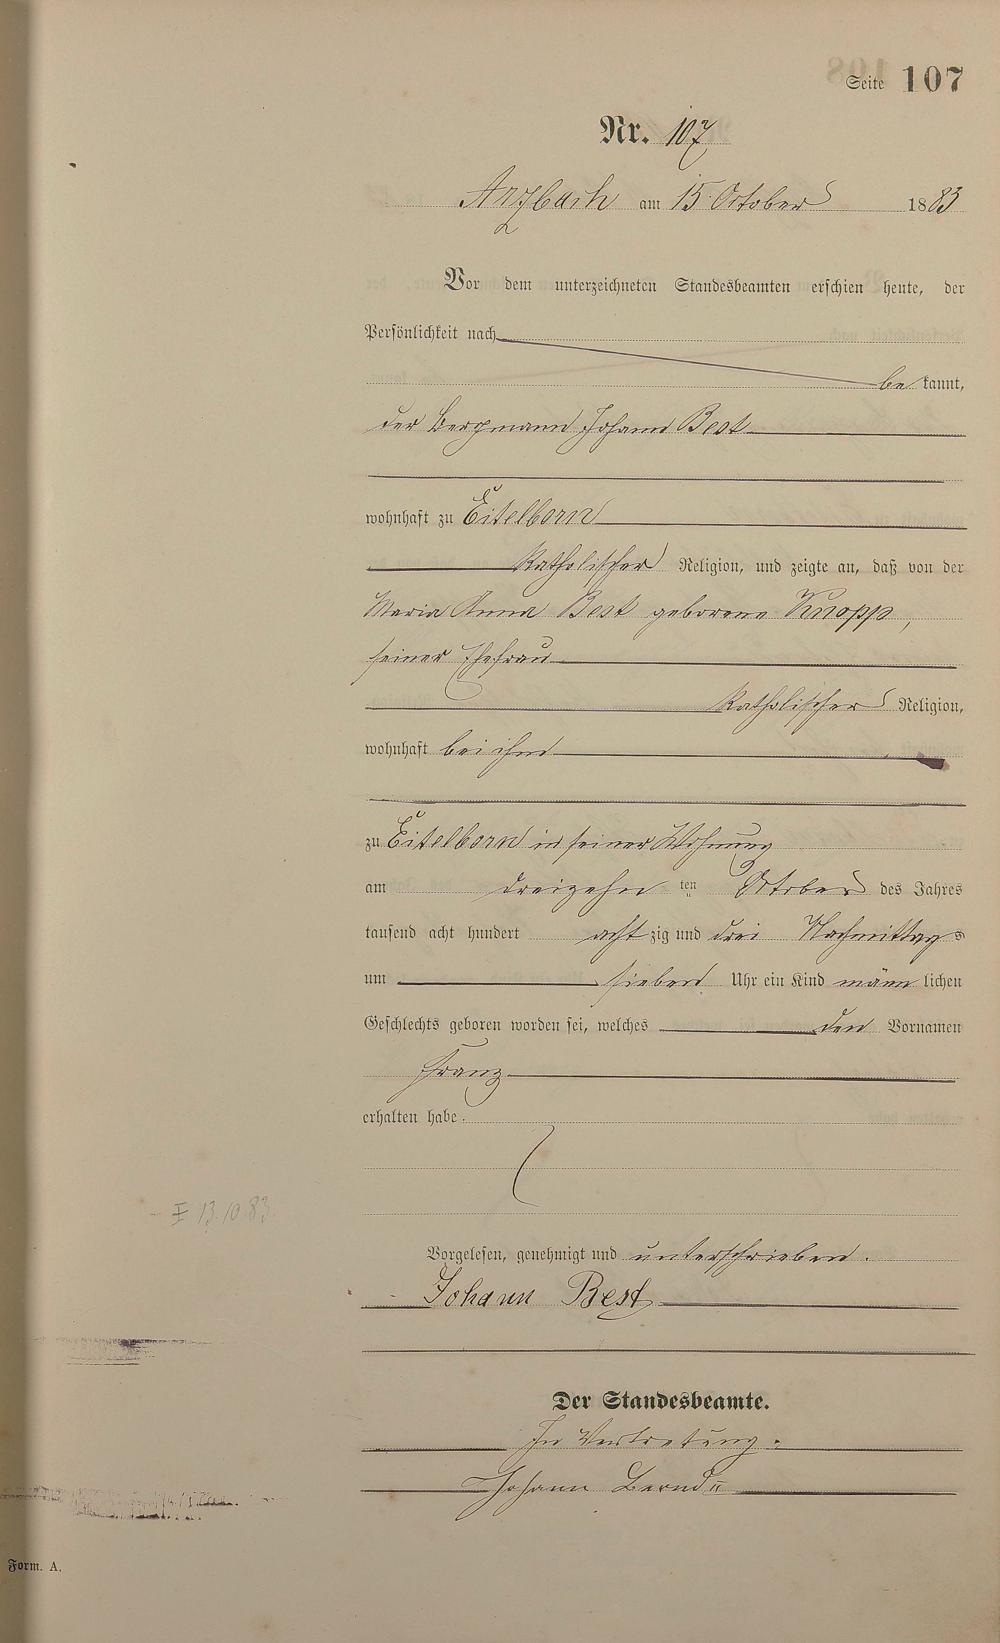 Seite 107
Nr. 107
Arzbach am 15 October 1883
Vor dem unterzeichneten Standesbeamten erschien heute, der
Persönlichkeit nach
be kannt,
der Bergmann Johann Best
wohnhaft zu Eitelborn
katholischer Religion, und zeigte an, daß von der
Maria Anna Best geborene Knopp,
seiner Ehefrau
katholischer Religion,
wohnhaft bei ihm
zu Eitelborn in seiner Wohnung
am dreizehn ten October des Jahres
tausend acht hundert acht zig und drei Nachmittags
um sieben Uhr ein Kind männ lichen
Geschlechts geboren worden sei, welches den Vornamen
Franz
erhalten habe.
I 13.10.83.
Vorgelesen, genehmigt und unterschrieben.
Johann Best
Der Standesbeamte.
In Vertretung.
Johann Bernd II
Form. A.